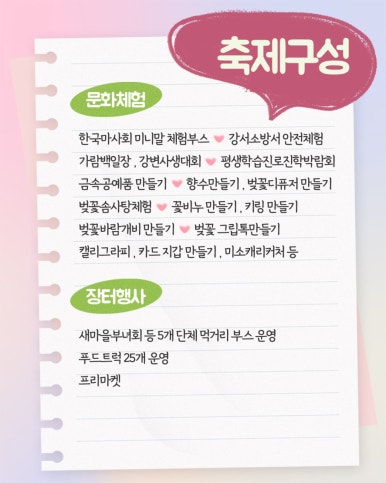 축제구성
문화체험
한국마사회 미니말 체험부스 ♥ 강서소방서 안전체험
가람백일장 , 강변사생대회 ♥ 평생학습진로진학박람회
금속공예품 만들기 ♥ 향수만들기 , 벚꽃디퓨저 만들기
벚꽃솜사탕체험 ♥ 꽃비누 만들기 , 키링 만들기
벚꽃바람개비 만들기 ♥ 벚꽃 그립톡만들기
캘리그라피 , 카드 지갑 만들기 , 미소캐리커처 등
장터행사
새마을부녀회 등 5개 단체 먹거리 부스 운영
푸드트럭 25개 운영
프리마켓